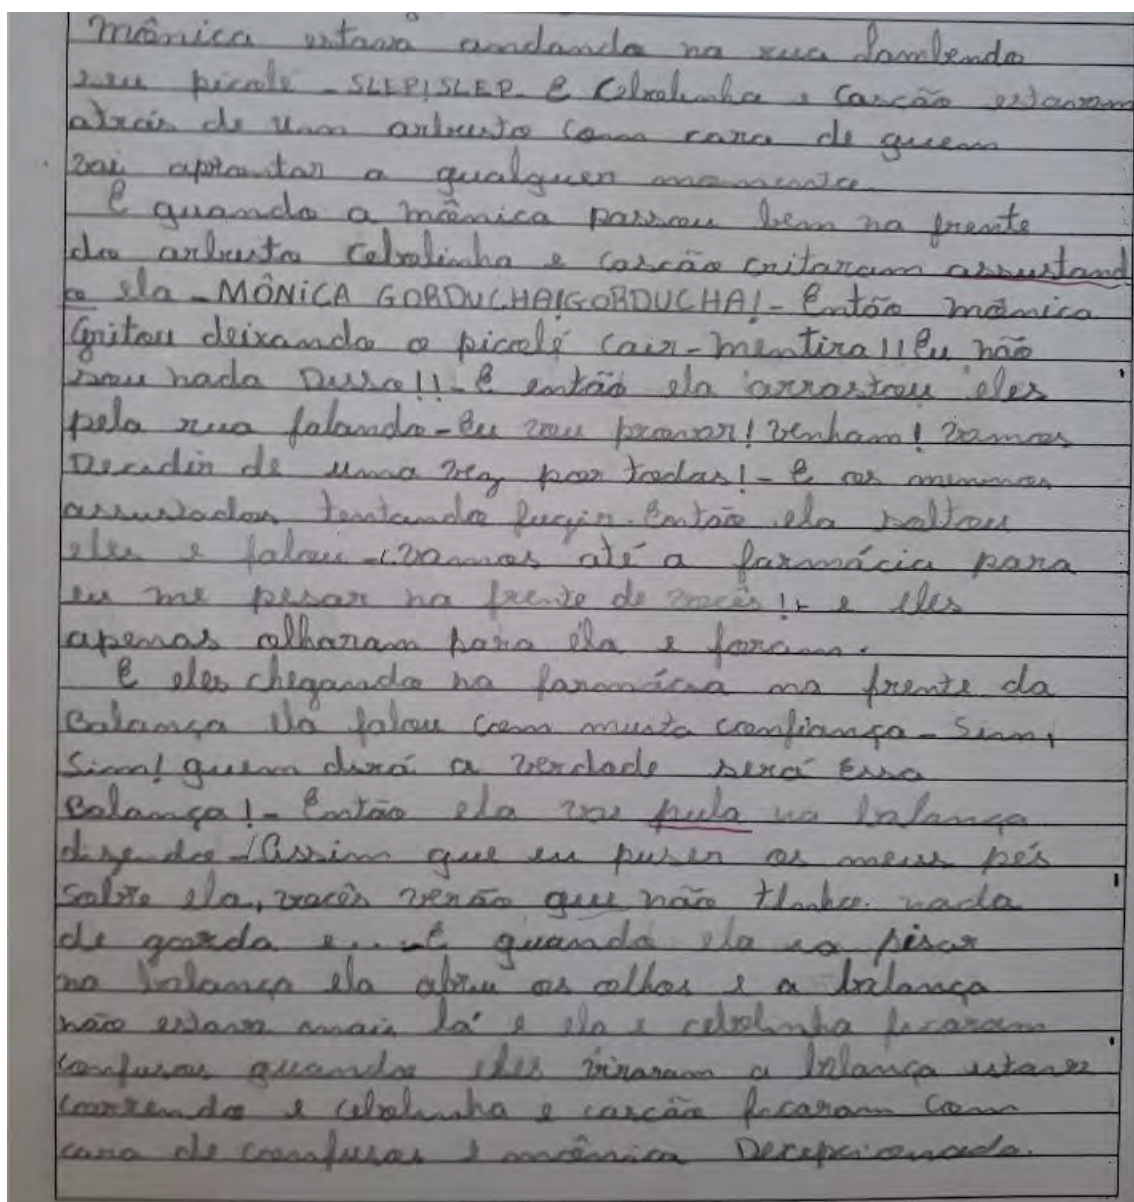 Mônica estava andando na rua lambendo
seu picolé - SLEP!SLEP. E Cebolinha e Cascão estavam
atrás de um arbusto com cara de quem
vai aprontar a qualquer momento.
E quando a mônica passou bem na frente
do arbusto Cebolinha e cascão critaram assustand
o ela - MÔNICA GORDUCHA!GORDUCHA! - Então mônica
Gritou deixando o picolé cair - mentira!! Eu não
sou nada Disso!! - E então ela arrastou eles
pela rua falando - Eu vou provar! venham! vamos
Decidir de uma vez por todas! - E os meninos
assustados tentando fugir. Então ela soltou
eles e falou - vamos até a farmácia para
eu me pesar na frente de vocês! - e eles
apenas olharam para ela e foram.
E eles chegando na farmácia na frente da
Balança ela falou com muita confiança - Sim,
Sim! quem dirá a verdade será Essa
Balança! - Então ela vai pula na balança
dizendo - Assim que eu puser os meus pés
sobre ela, vocês verão que não tenho nada
de gorda e... - E quando ela ia pisar
na balança ela abriu os olhos e a balança
não estava mais lá e ela e cebolinha ficaram
confusos quando eles viraram a balança estava
correndo e cebolinha e cascão ficaram com
cara de confusos e mônica Decepcionada.